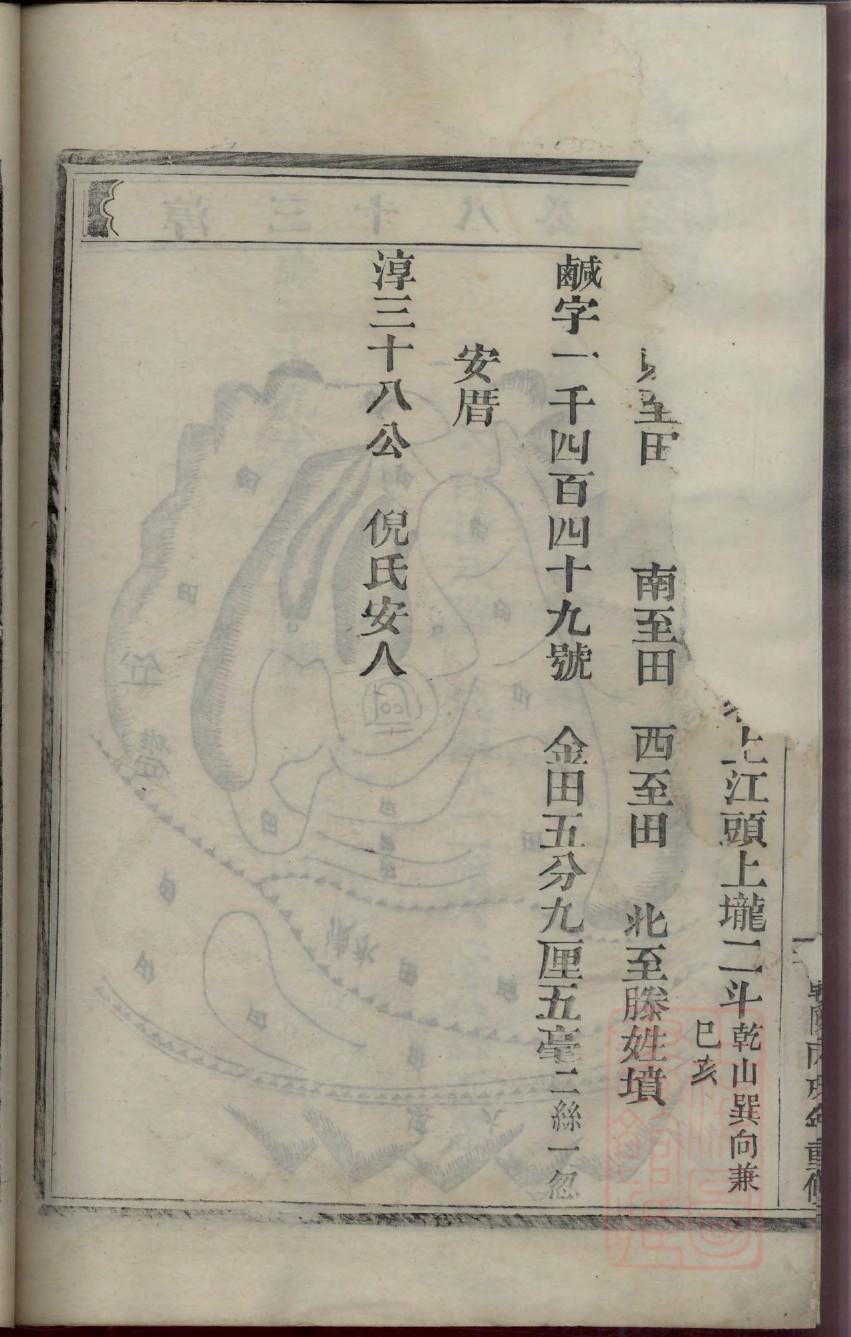 上江頭上壠二斗乾山巽向兼
巳亥
至田　南至田　西至田　北至滕姓墳
鹹字一千四百四十九號　金田五分九厘五毫二絲一忽
安厝
淳三十八公　倪氏安人